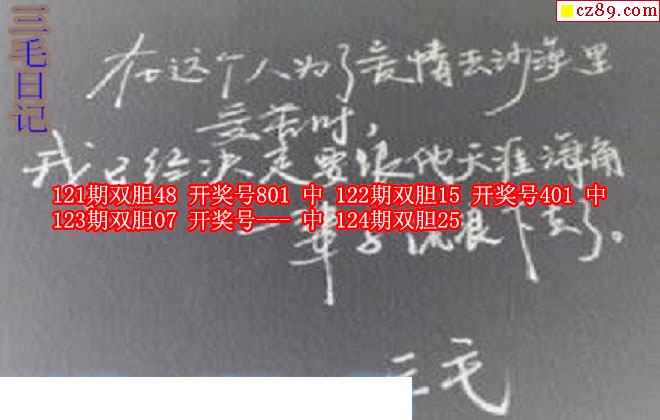 cz89.com
三毛日记
在这个人为了爱情去沙漠里
受苦时，
我已经决定要跟他天涯海角
121期双胆48 开奖号801 中 122期双胆15 开奖号401 中
123期双胆07 开奖号--- 中 124期双胆25
一辈子流浪下去了。
三毛